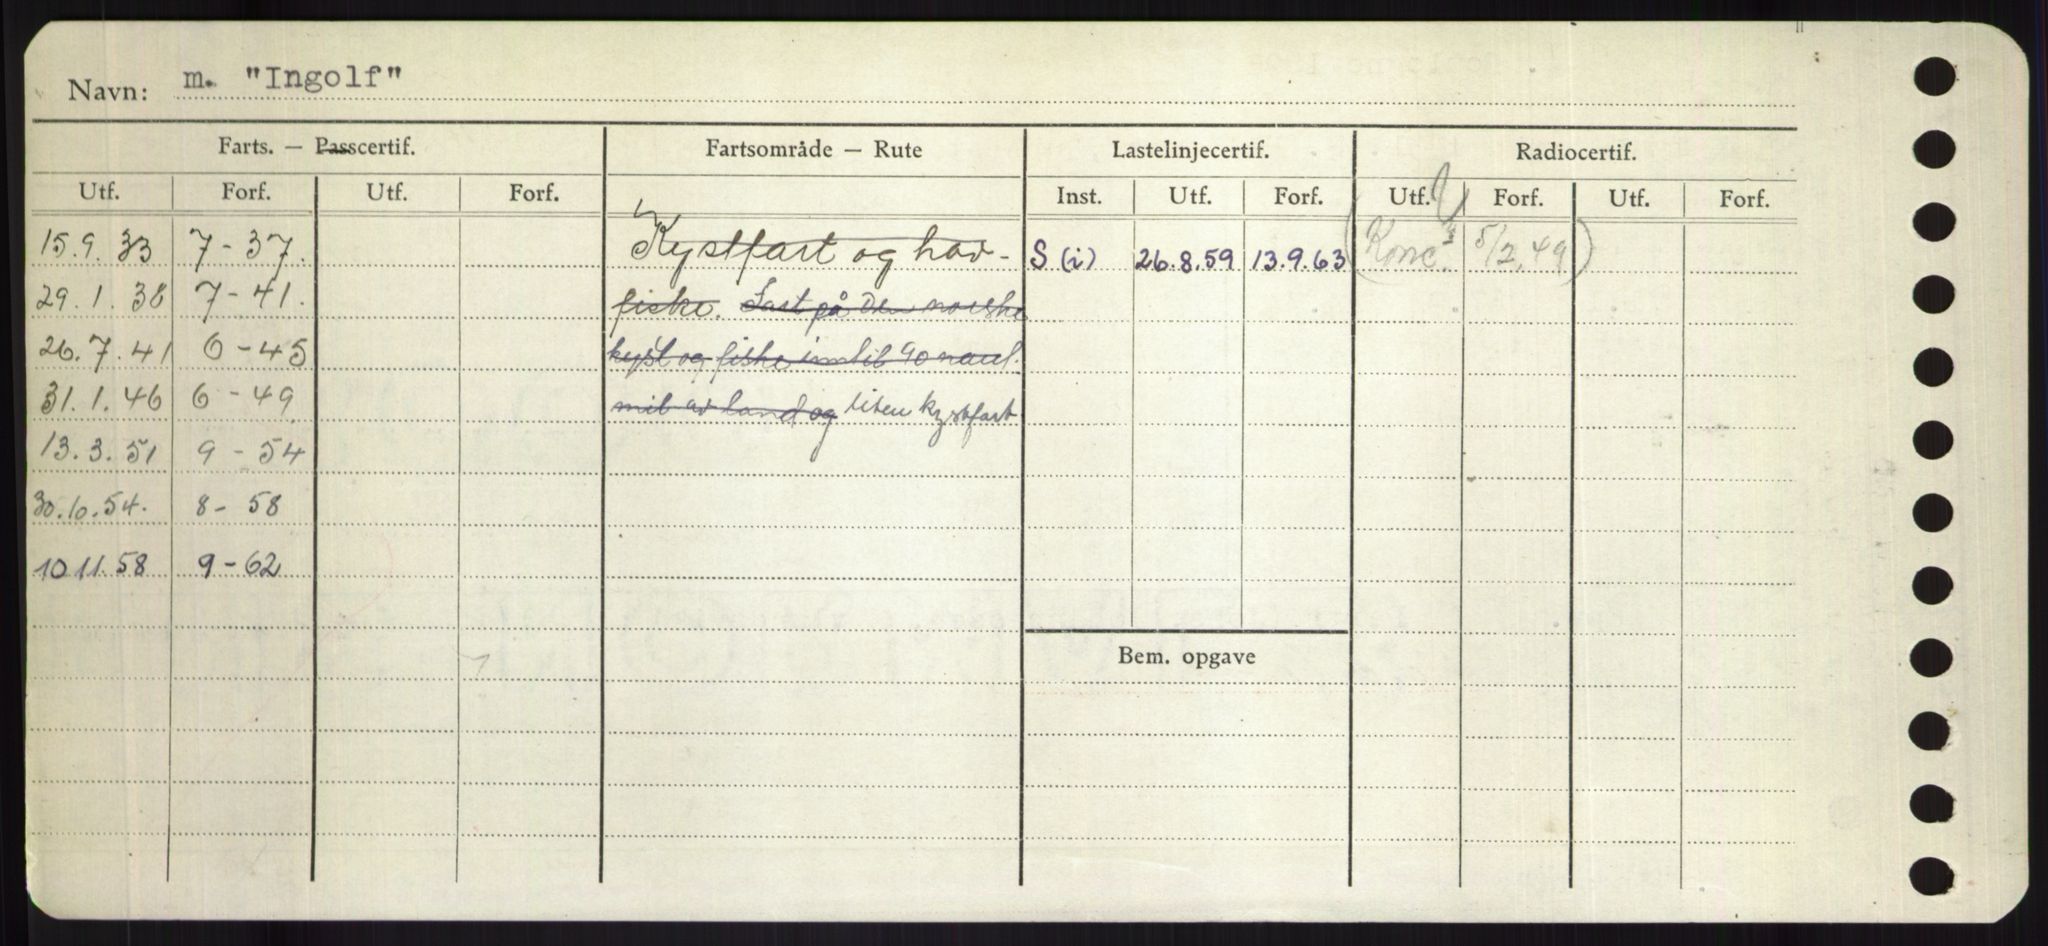 Navn: m. "Ingolf"
Farts. — Passcertif. Fartsområde — Rute Lastelinjecertif. Radiocertif.
Utf. Forf. Utf. Forf. Inst. Utf. Forf. Utf. Forf. Utf. Forf.
15.9.33 7-37. Kystfart og hav- S (i) 26.8.59 13.9.63 (Konc. 5/2.49)
29.1.38 7-41. fiske. Last på den norske
26.7.41 6-45 kyst og fiske inntil 90 naut.
31.1.46 6-49 mil av land og liten kystfart
13.3.51 9-54
30.10.54. 8-58
10 11.58 9-62
Bem. opgave